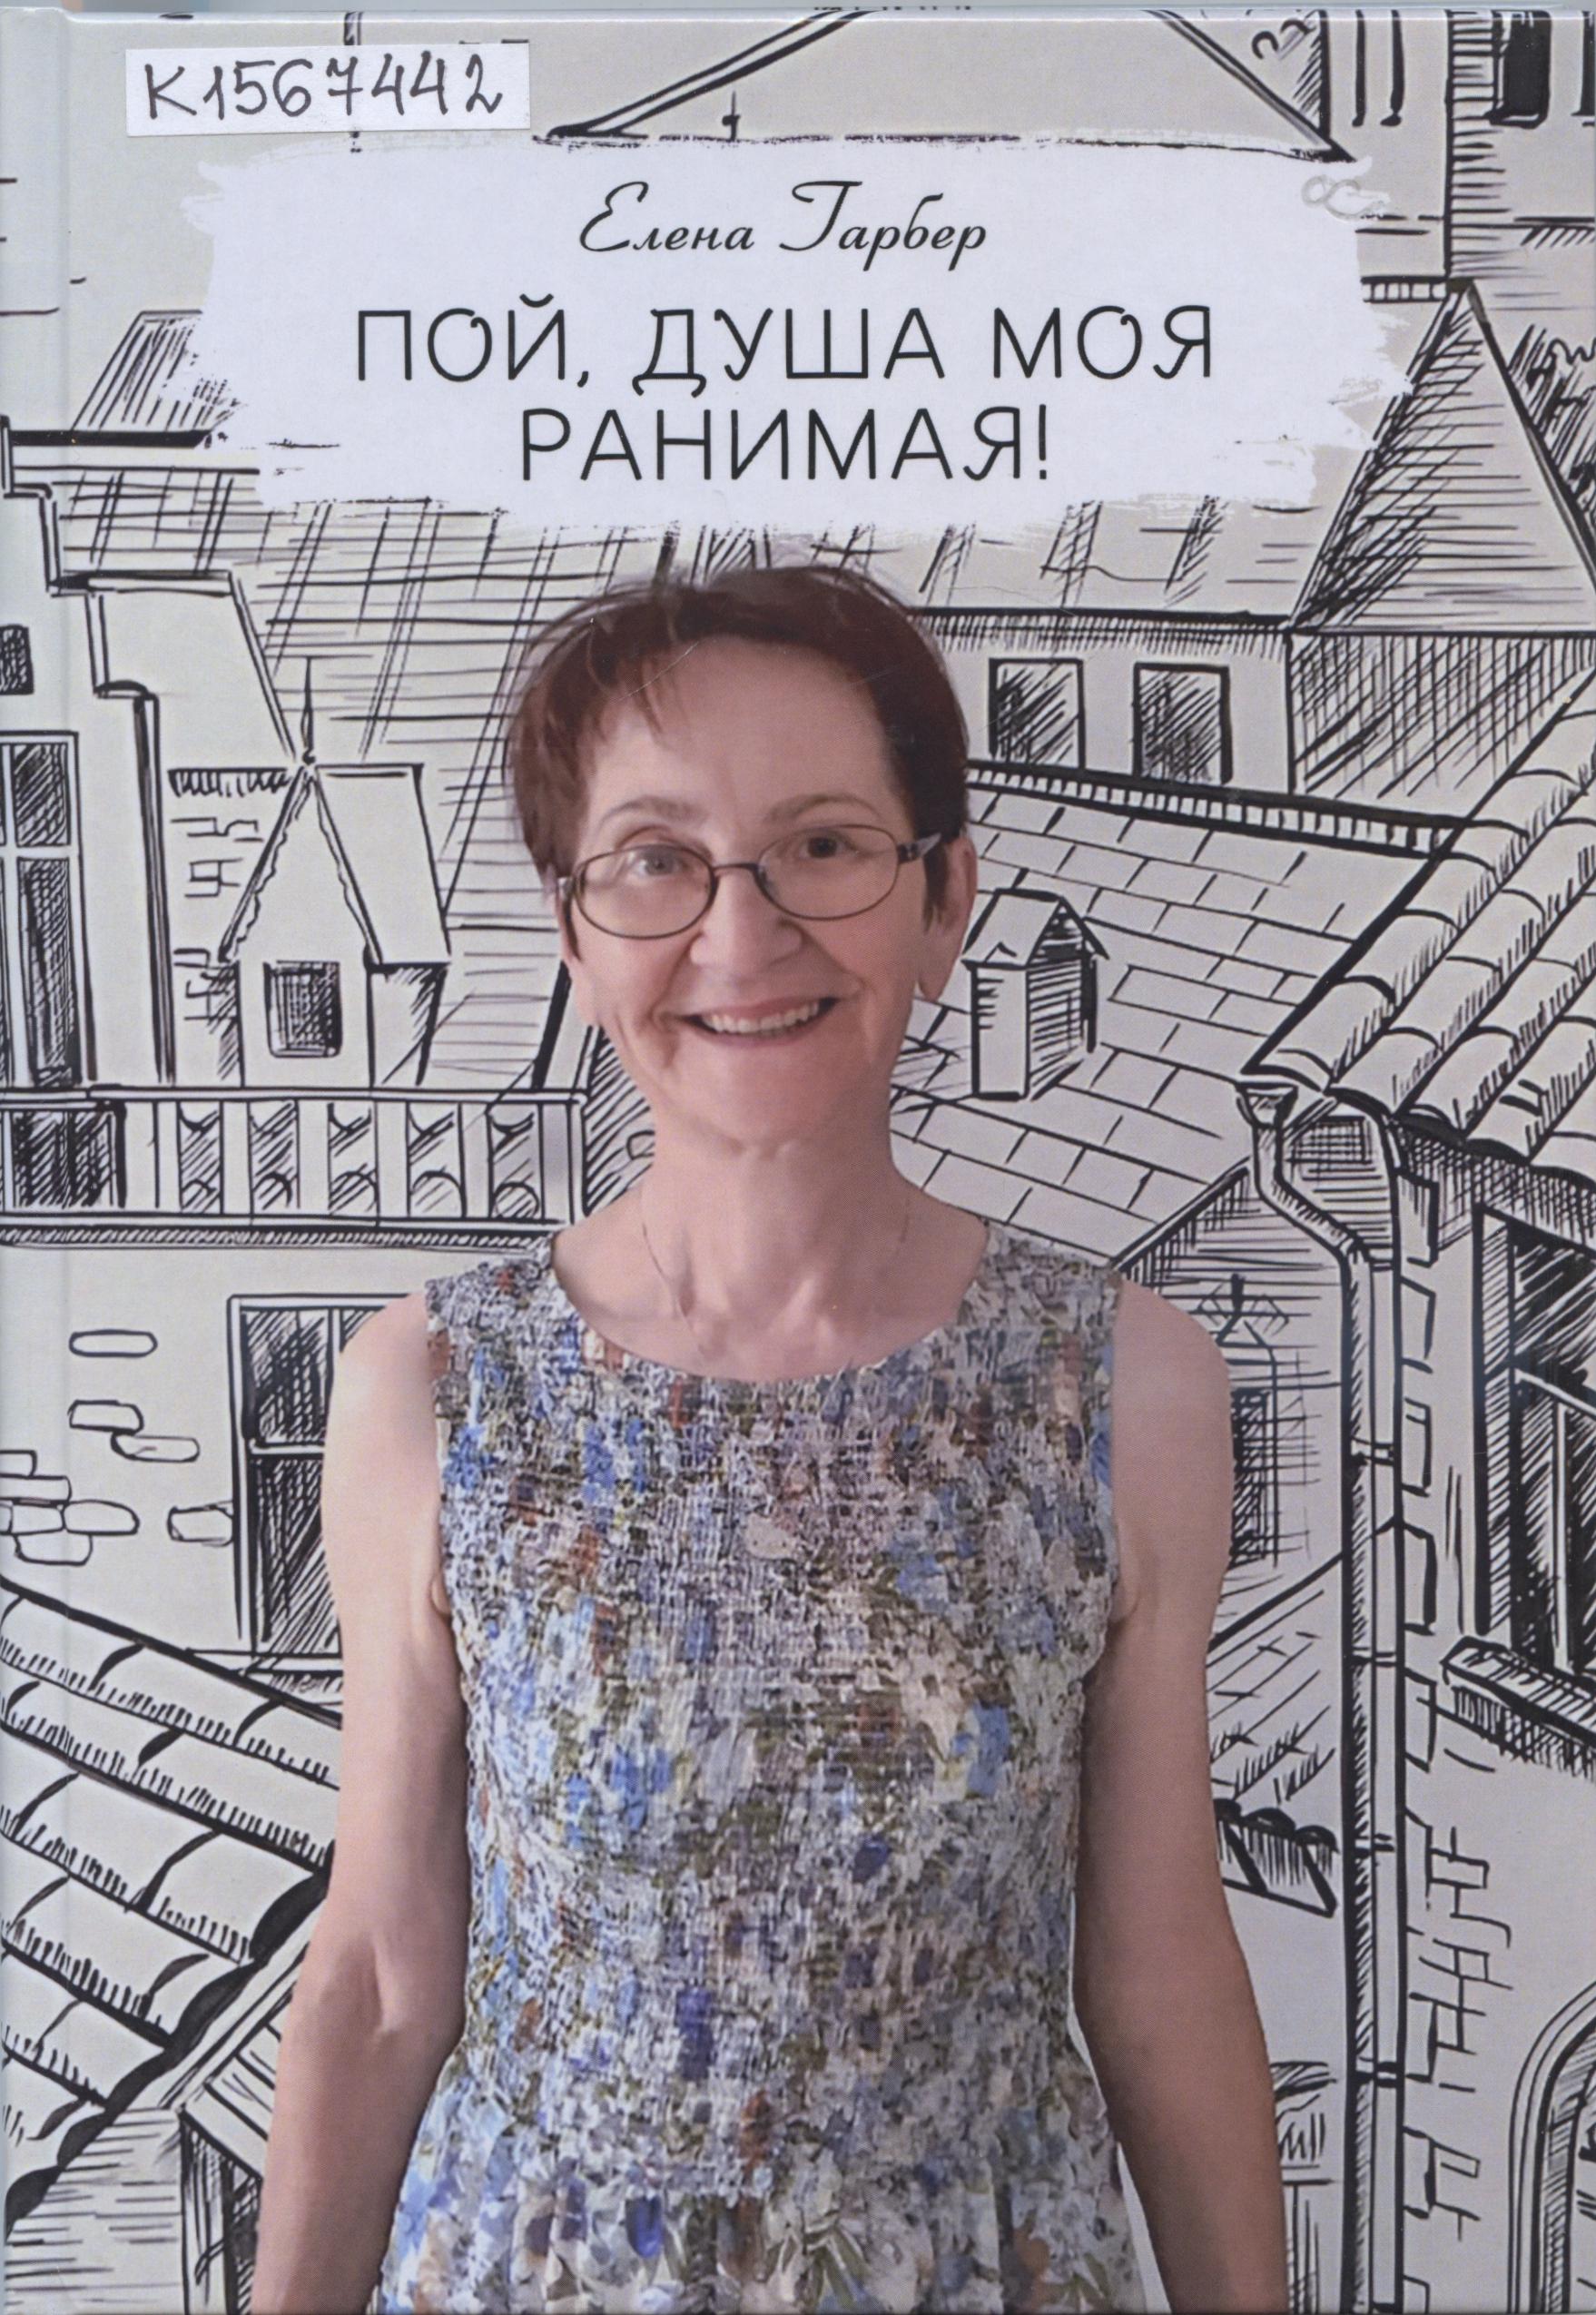 К1567442
Елена Гарбер
ПОЙ, ДУША МОЯ
РАНИМАЯ!